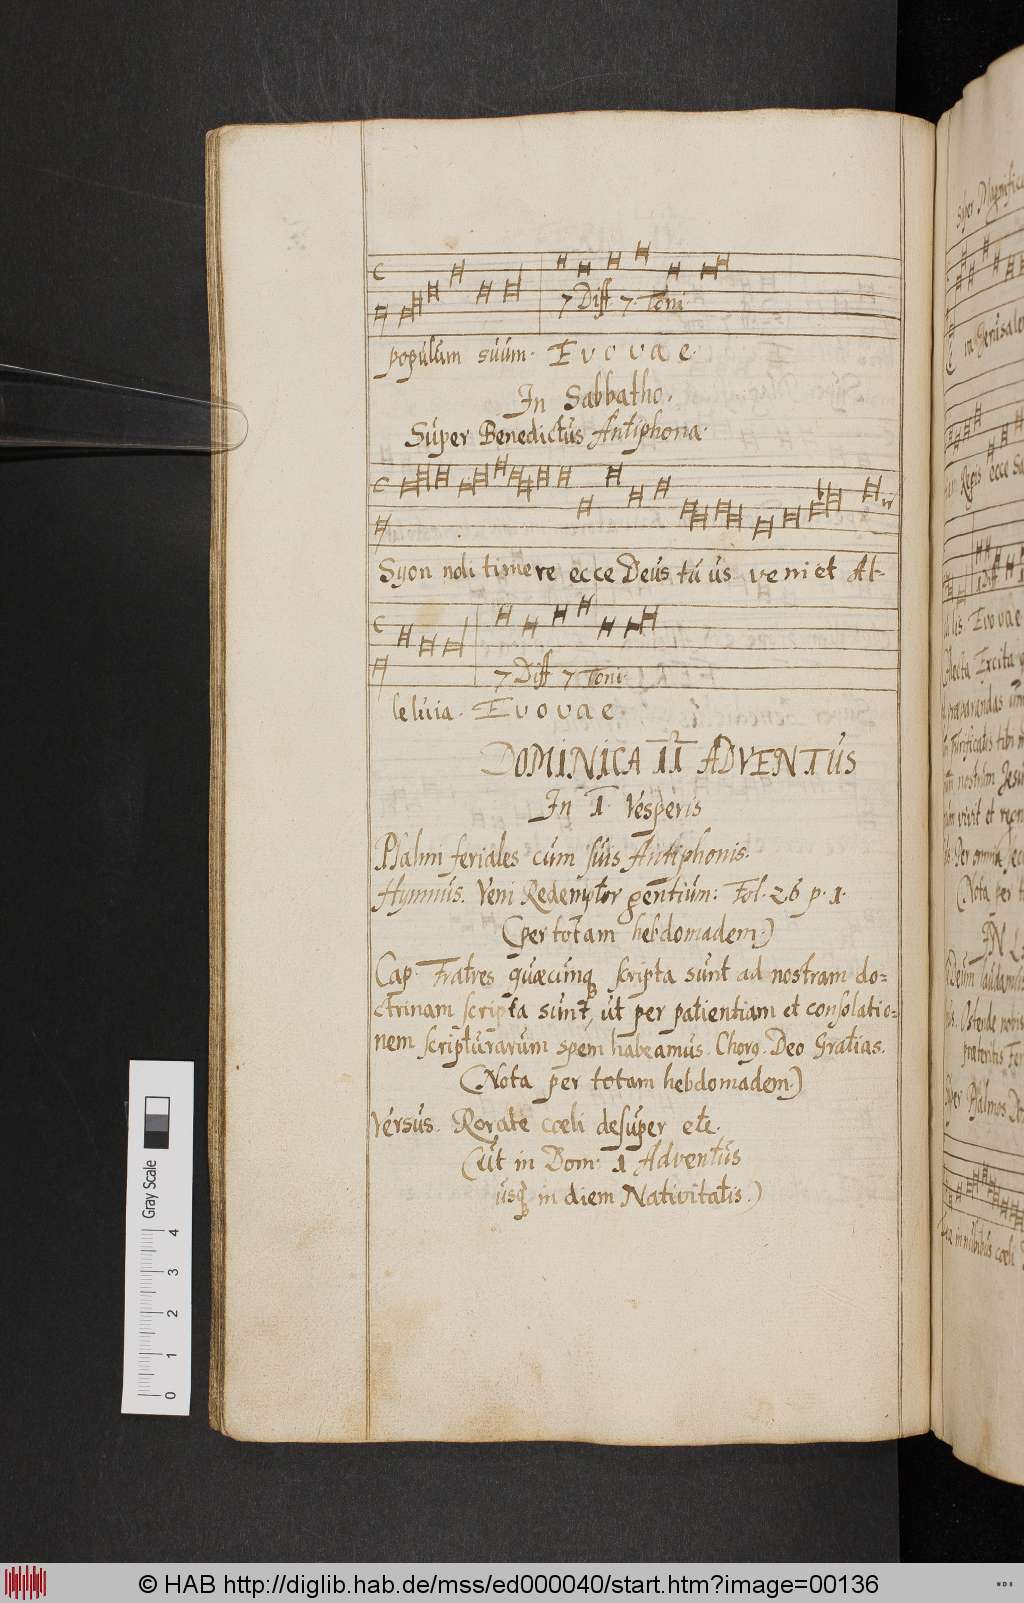 7 Diff 7 Toni
populum suum. Evovae.
In Sabbatho.
Super Benedictus Antiphona.
Syon noli timere ecce Deus tuus veniet Al-
7 Diff 7 Toni
leluia. Evovae
DOMINICA II ADVENTUS
In 1 Vesperis
Psalmi feriales cum suis Antiphonis.
Hymnus. Veni Redemptor gentium: Fol. 26 p. 1.
(per totam hebdomadem.)
Cap. Fratres quæcunq scripta sunt ad nostram do=
ctrinam scripta sunt, ut per patientiam et consolatio=
nem scripturarum spem habeamus. Chorq. Deo Gratias.
(Nota per totam hebdomadem.)
Versus. Rorate cœli desuper etc.
(ut in Dom: 1 Adventus
usq in diem Nativitatis.)
Super
in Jerusalem
Regis ecce
1 Diff
Evovae
Excita
nostrum Jesu
vivit et
Per omnia
(Nota per
IN
Deum
Ostende nobis
Psalmos
in nubibus cœli
Gray Scale
0 1 2 3 4
© HAB http://diglib.hab.de/mss/ed000040/start.htm?image=00136